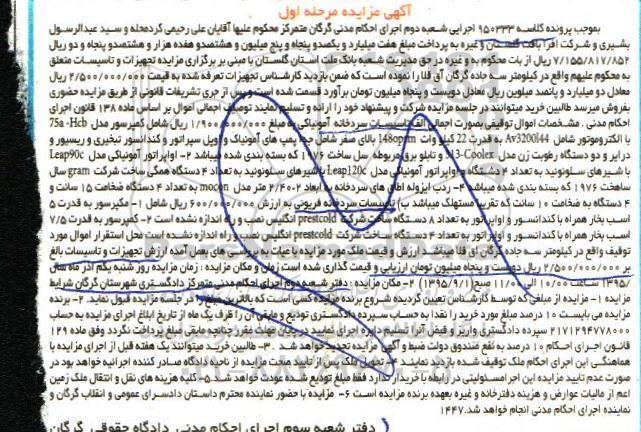 آگهی مزایده مرحله اول
بموجب پرونده کلاسه ۹۵۰۳۳۳ اجرایی شعبه دوم اجرای احکام مدنی گرگان متمرکز محکوم علیها آقایان علی رحیمی کردمحله و سید عبدالرسول
بشیری و شرکت افرا بافت گلستان و غیره به پرداخت مبلغ هفت میلیارد و یکصدو پنجاه و پنج میلیون و هشتصدو هفده هزار و هشتصدو پنجاه و دو ریال
۷/۱۵۵/۸۱۷/۸۵۲ ریال از بات محکوم به و غیره در حق مدیریت شعبه بانک ملت استان گلستان با مبنی بر برگزاری مزایده تجهیزات و تاسیسات متعلق
به محکوم علیهم واقع در کیلومتر سه جاده گرگان آق قلا را نموده است که ضمن بازدید کارشناس تجهیزات تعرفه شده به قیمت ۲/۵۰۰/۰۰۰/۰۰۰ ریال
معادل دو میلیارد و پانصد میلیون ریال معادل دویست و پنجاه میلیون تومان برآورد قسمت شده است پس از جری تشریفات قانونی از طریق مزایده حضوری
بفروش میرسد طالبین خرید میتوانند در جلسه مزایده شرکت و پیشنهاد خود را ارائه و تسلیم نمایند توصیف اجمالی اموال بر اساس ماده ۱۳۸ قانون اجرای
احکام مدنی . مشخصات اموال توقیفی بصورت اجمالی الف تاسیسات سردخانه آمونیاکی به مبلغ ۱/۹۰۰/۰۰۰/۰۰۰ ریال شامل کمپرسور مدل 75a -Hcb
با الکتروموتور شامل Av3200l44 به قدرت 22 کیلو وات 1480pm بالای صفر شامل پمپ های آمونیاک و اویل سپراتور و کندانسور تبخیری و ریسیور و
درایر و دو دستگاه رطوبت زن مدل M13-Coolex و تابلو برق مربوطه سال ساخت ۱۹۷۶ که بسته بندی شده میباشد ۲- اواپراتور آمونیاکی مدل Leap90c
با شیرهای سلونوئید به تعداد ۴ دستگاه و اواپراتور آمونیاکی مدل Leap120c با شیرهای سلونوئید به تعداد ۴ دستگاه همگی ساخت شرکت gram سال
ساخت ۱۹۷۶ که بسته بندی شده میباشد ۳- ردب ایزوله اطاق های سردخانه به ابعاد ۲/۴۰×۲ متر مدل mocon به تعداد ۴ دستگاه ضخامت ۱۵ سانت و
۴ دستگاه به ضخامت ۱۰ سانت که تقریبا مستهلک میباشد ب) تاسیسات سردخانه فریونی به ارزش ۶۰۰/۰۰۰/۰۰۰ ریال شامل ۱- مکپرسور به قدرت ۵
اسب بخار همراه با کندانسور و اواپراتور به تعداد ۸ دستگاه ساخت شرکت prestcold انگلیس نصب و راه اندازه نشده است ۲- کمپرسور به قدرت ۷/۵
اسب بخار همراه با کندانسور و اواپراتور به تعداد ۴ دستگاه ساخت شرکت prestcold انگلیس نصب و راه اندازه نشده است محل استقرار اموال مورد
توقیف واقع در کیلومتر سه جاده گرگان آق قلا میباشد ارزش و قیمت ملک مورد مزایده با عیات به بررسی های بعمل آمده ارزش تجهیزات و تاسیسات بالغ
بر ۲/۵۰۰/۰۰۰/۰۰۰ ریال دویست و پنجاه میلیون تومان ارزیابی و قیمت گذاری شده است زمان و مکان مزایده : زمان مزایده روز شنبه یکم آذر ماه سال
۱۳۹۵/ ساعت ۱۰/۰۰ الی ۱۱/۰۰ صبح (۱۳۹۵/۹/۱) ۲- مکان مزایده : دفتر شعبه دوم اجرای احکام مدنی متمرکز دادگستری شهرستان گرگان شرایط
مزایده ۱- مزایده از مبلغی که توسط کارشناس تعیین گردیده شروع برنده مزایده کسی است که بالاترین مبلغ را در جلسه مزایده قبول نماید. ۲- برنده
مزایده می بایست ۱۰ درصد مبلغ مورد خرید را نقدا به حساب سپرده دادگستری تودیع و مابقی آن را ظرف یک ماه از تاریخ ابلاغ اجرای مزایده به حساب
۲۱۷۱۲۹۴۷۷۸۰۰۰ سپرده دادگستری واریز و قبض آنرا تسلیم دایره اجرای نمایید در پایان مهلت مقرر چنانچه مابقی مبلغ پرداخت نگردد وفق ماده ۱۲۹
قانون اجرای احکام ۱۰ درصد به نفع صندوق دولت ضبط و آگهی مزایده تجدید خواهد شد . ۳- طالبین خرید میتوانند یک هفته قبل از اجرای مزایده با
هماهنگی این اجرای احکام ملک توقیف شده بازدید نمایند ۴- تحویل ملک پس از تایید صحت مزایده از ناحیه دادگاه صادر کننده اجرائیه خواهد بود در
صورت عدم تایید مزایده این اجرا مسئولیتی در رابطه با خریدار ندارد فقط مبلغ تودیع شده عودت خواهد شد ۵- کلیه هزینه های نقل و انتقال ملک زمین
اعم از مالیات عوارض و هزینه دفترخانه و غیره بعهده برنده مزایده است ۶- مزایده با حضور نماینده محترم داستان دادسرای عمومی و انقلاب گرگان و
نماینده اجرای احکام مدنی انجام خواهد شد. ۱۴۴۷
دفتر شعبه سوم اجرای احکام مدنی دادگاه حقوقی گرگان